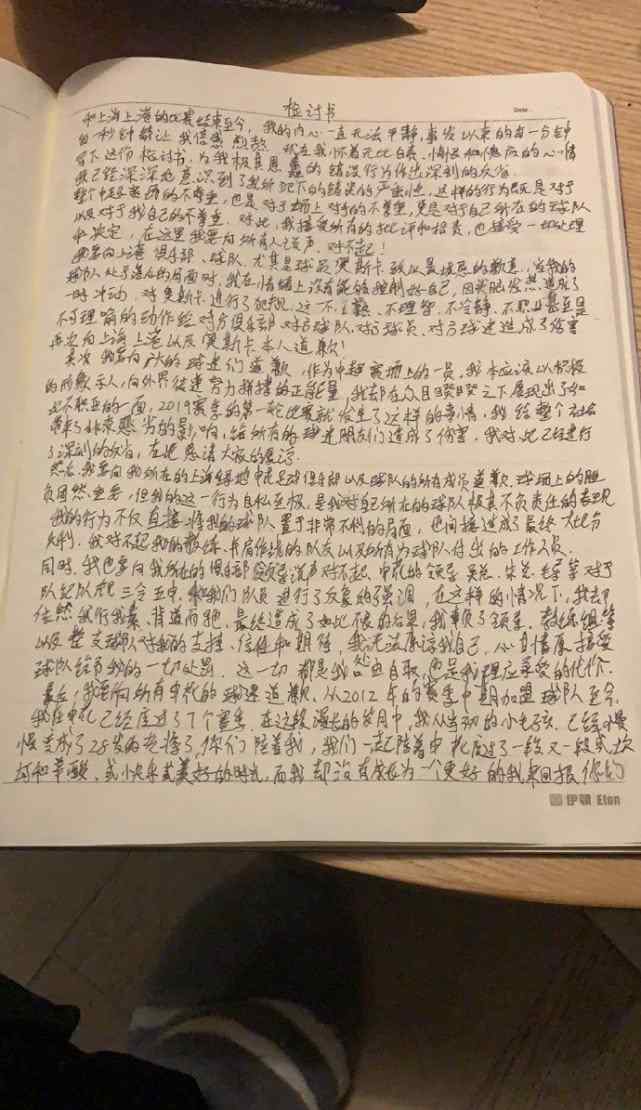 检讨书
Date
和上海上港的比赛结束至今,我的内心一直无法平静,事发以来的每一分钟
每一秒钟都让我倍感煎熬。现在我怀着无比自责、悔恨和愧疚的心情
写下这份检讨书,为我极其愚蠢的错误行为作出深刻的反省。
我已经深深地意识到了我所犯下的错误的严重性,这样的行为既是对于
整个中超联赛的不尊重,也是对于场上对手的不尊重,更是对于自己所在的球队
以及对于我自己的不尊重。对此,我接受所有的批评和指责,也接受一切处理
和决定,在这里我要向所有人说声:对不起!
我要向上港俱乐部、球队、尤其是球员奥斯卡致以最诚恳的歉意,当我的
球队处于落后的局面时,我在情绪上没有能够控制好自己,因头脑发热,造成了
一时冲动,对奥斯卡进行了犯规,这一不道德、不理智、不冷静、不职业甚至是
不可理喻的动作给对方俱乐部、对方球队、对方球员、对方球迷造成了伤害
再次向上海上港以及奥斯卡本人道歉!
其次,我要向广大的球迷们道歉,作为中超赛场上的一员,我本应该以积极
的形象示人,向外界传递努力拼搏的正能量,我却在众目睽睽之下展现出了如
此不职业的一面,2019赛季的第一轮比赛就发生了这样的事情,我给整个社会
带来了非常恶劣的影响,给所有的球迷朋友们造成了伤害,我对此已经进行
了深刻的反省,在此恳请大家的原谅。
然后,我要向我所在的上海绿地申花足球俱乐部以及球队的所有成员道歉,球场上的胜
负固然重要,但我的这一行为自私至极,是我对自己所在的球队极其不负责任的表现
我的行为不仅直接将我的球队置于非常不利的局面,也间接造成了最终大比分
失利。我对不起我的教练、并肩作战的队友以及所有为球队付出的工作人员。
同时,我也要向我所在的俱乐部领导说声对不起、申花的领导吴总、朱总、毛导等对于
队纪队规三令五申,和我们队员进行了反复的强调,在这样的情况下,我去却
依然我行我素、背道而驰,最终造成了如此不良的后果,我辜负了领导、教练组等
以及整支球队对我的支持、信任和期待,我无法原谅我自己,心甘情愿接受
球队给予我的一切处罚。这一切都是我咎由自取,也是我理应承受的代价。
最后,我要向所有申花的球迷道歉,从2012年的赛季中期加盟球队至今,
我在申花已经度过了7个赛季,在这段漫长的岁月中,我从当初的小毛孩,已经慢
慢变成了28岁的老将了,你们陪着我,我们一起陪着申花度过了一段又一段或坎
坷和辛酸、或快乐或美好的时光,而我却没有成为一个更好的我来回报你们
伊顿 Eton